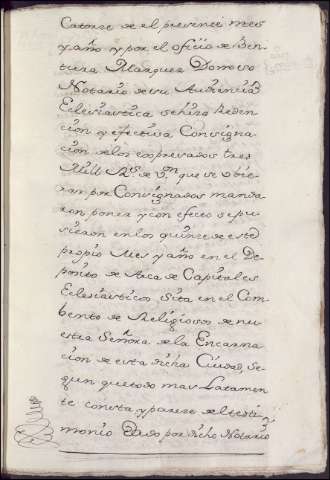 Catorse de el presente mes
y año y por el ofiçio de Ben-
tura Marquez Donoso
Notario de su Audiencia
Eclesiastica se hizo Reden-
cion y efectiua Consigna-
cion de los expresados tres
Mill R.^s de v.^on que se obie-
ran por Consignados manda-
ron poner y con efecto se pu-
sieron en los quinse de este
propio Mes y año en el De-
posito de Arca de Capitales
Eclesiasticos, Sita en el Com-
bento de Religiosos de nu-
estra Señora de la Encarna-
cion de esta dicha Ciudad, se-
gun que todo mas Latamen-
te consta y parese de el testi-
monio Dado por dicho Notario